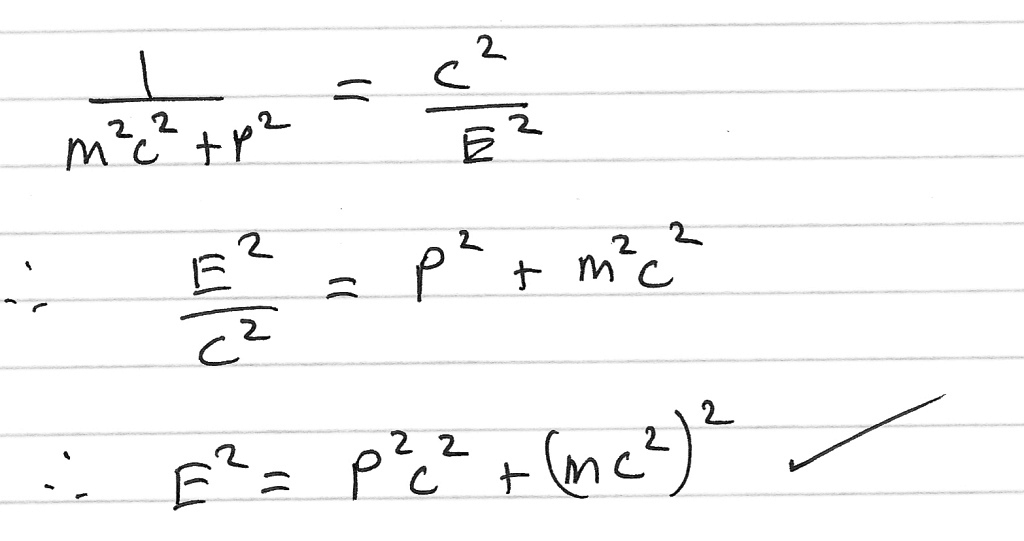 1/(m²c² + p²) = c²/E²
∴ E²/c² = p² + m²c²
∴ E² = p²c² + (mc²)² ✓